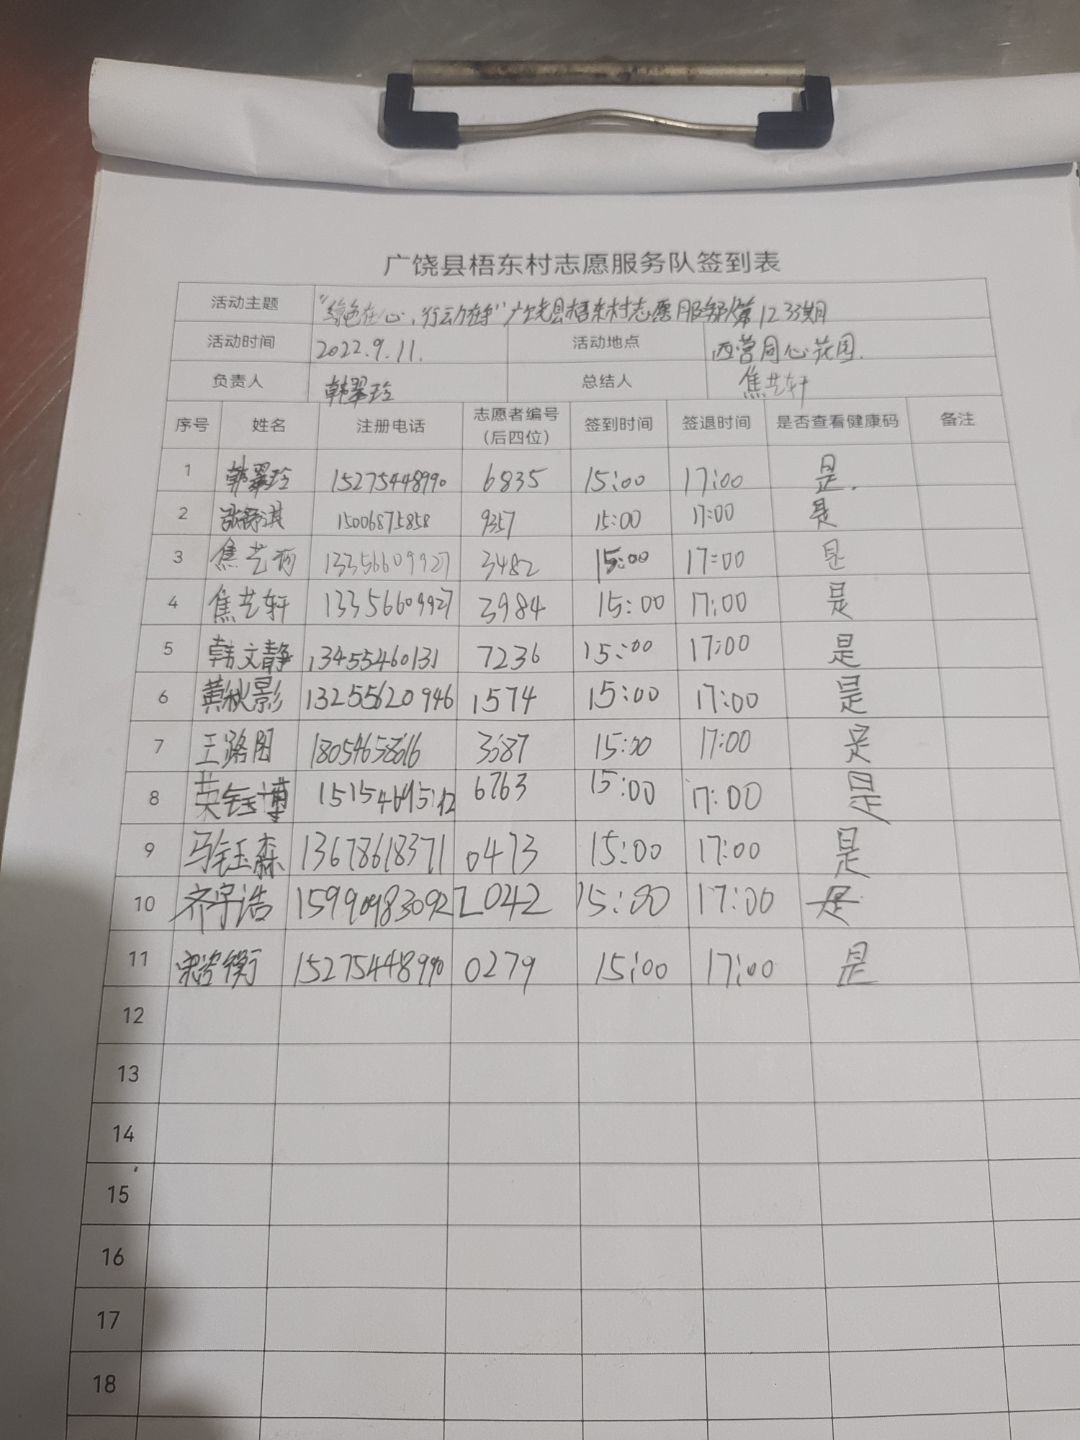 广饶县梧东村志愿服务队签到表
活动主题 "绿色在心,行动在手"广饶县梧东村志愿服务队第1233期
活动时间 2022.9.11. 活动地点 西营同心花园.
负责人 韩翠玲 总结人 焦艺轩
序号 姓名 注册电话 志愿者编号(后四位) 签到时间 签退时间 是否查看健康码 备注
1 韩翠玲 15275448990 6835 15:00 17:00 是.
2 15006875858 9357 15:00 17:00 是
3 焦艺珂 13356609927 3482 15:00 17:00 是
4 焦艺轩 13356609927 3984 15:00 17:00 是
5 韩文静 13455460131 7236 15:00 17:00 是
6 黄秋影 13255620946 1574 15:00 17:00 是
7 王路阳 18054658616 3687 15:00 17:00 是
8 英钰博 6763 15:00 17:00 是
9 马钰森 13678618371 0473 15:00 17:00 是
10 齐宇浩 15990983092 2042 15:00 17:00 是
11 15275448990 0279 15:00 17:00 是
12
13
14
15
16
17
18